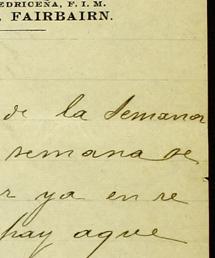 EDRICEÑA, F. I. M.
FAIRBAIRN.
de la semana
semana se
ya en re
hay aque